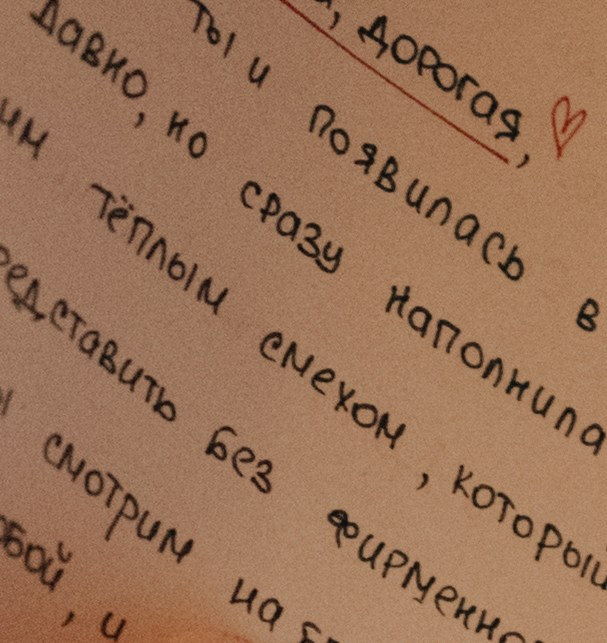 , дорогая, ♡
ты и появилась в
давно, но сразу наполнила
им тёплым смехом, который
редставить без фирменно
ы смотрим на
обой, и